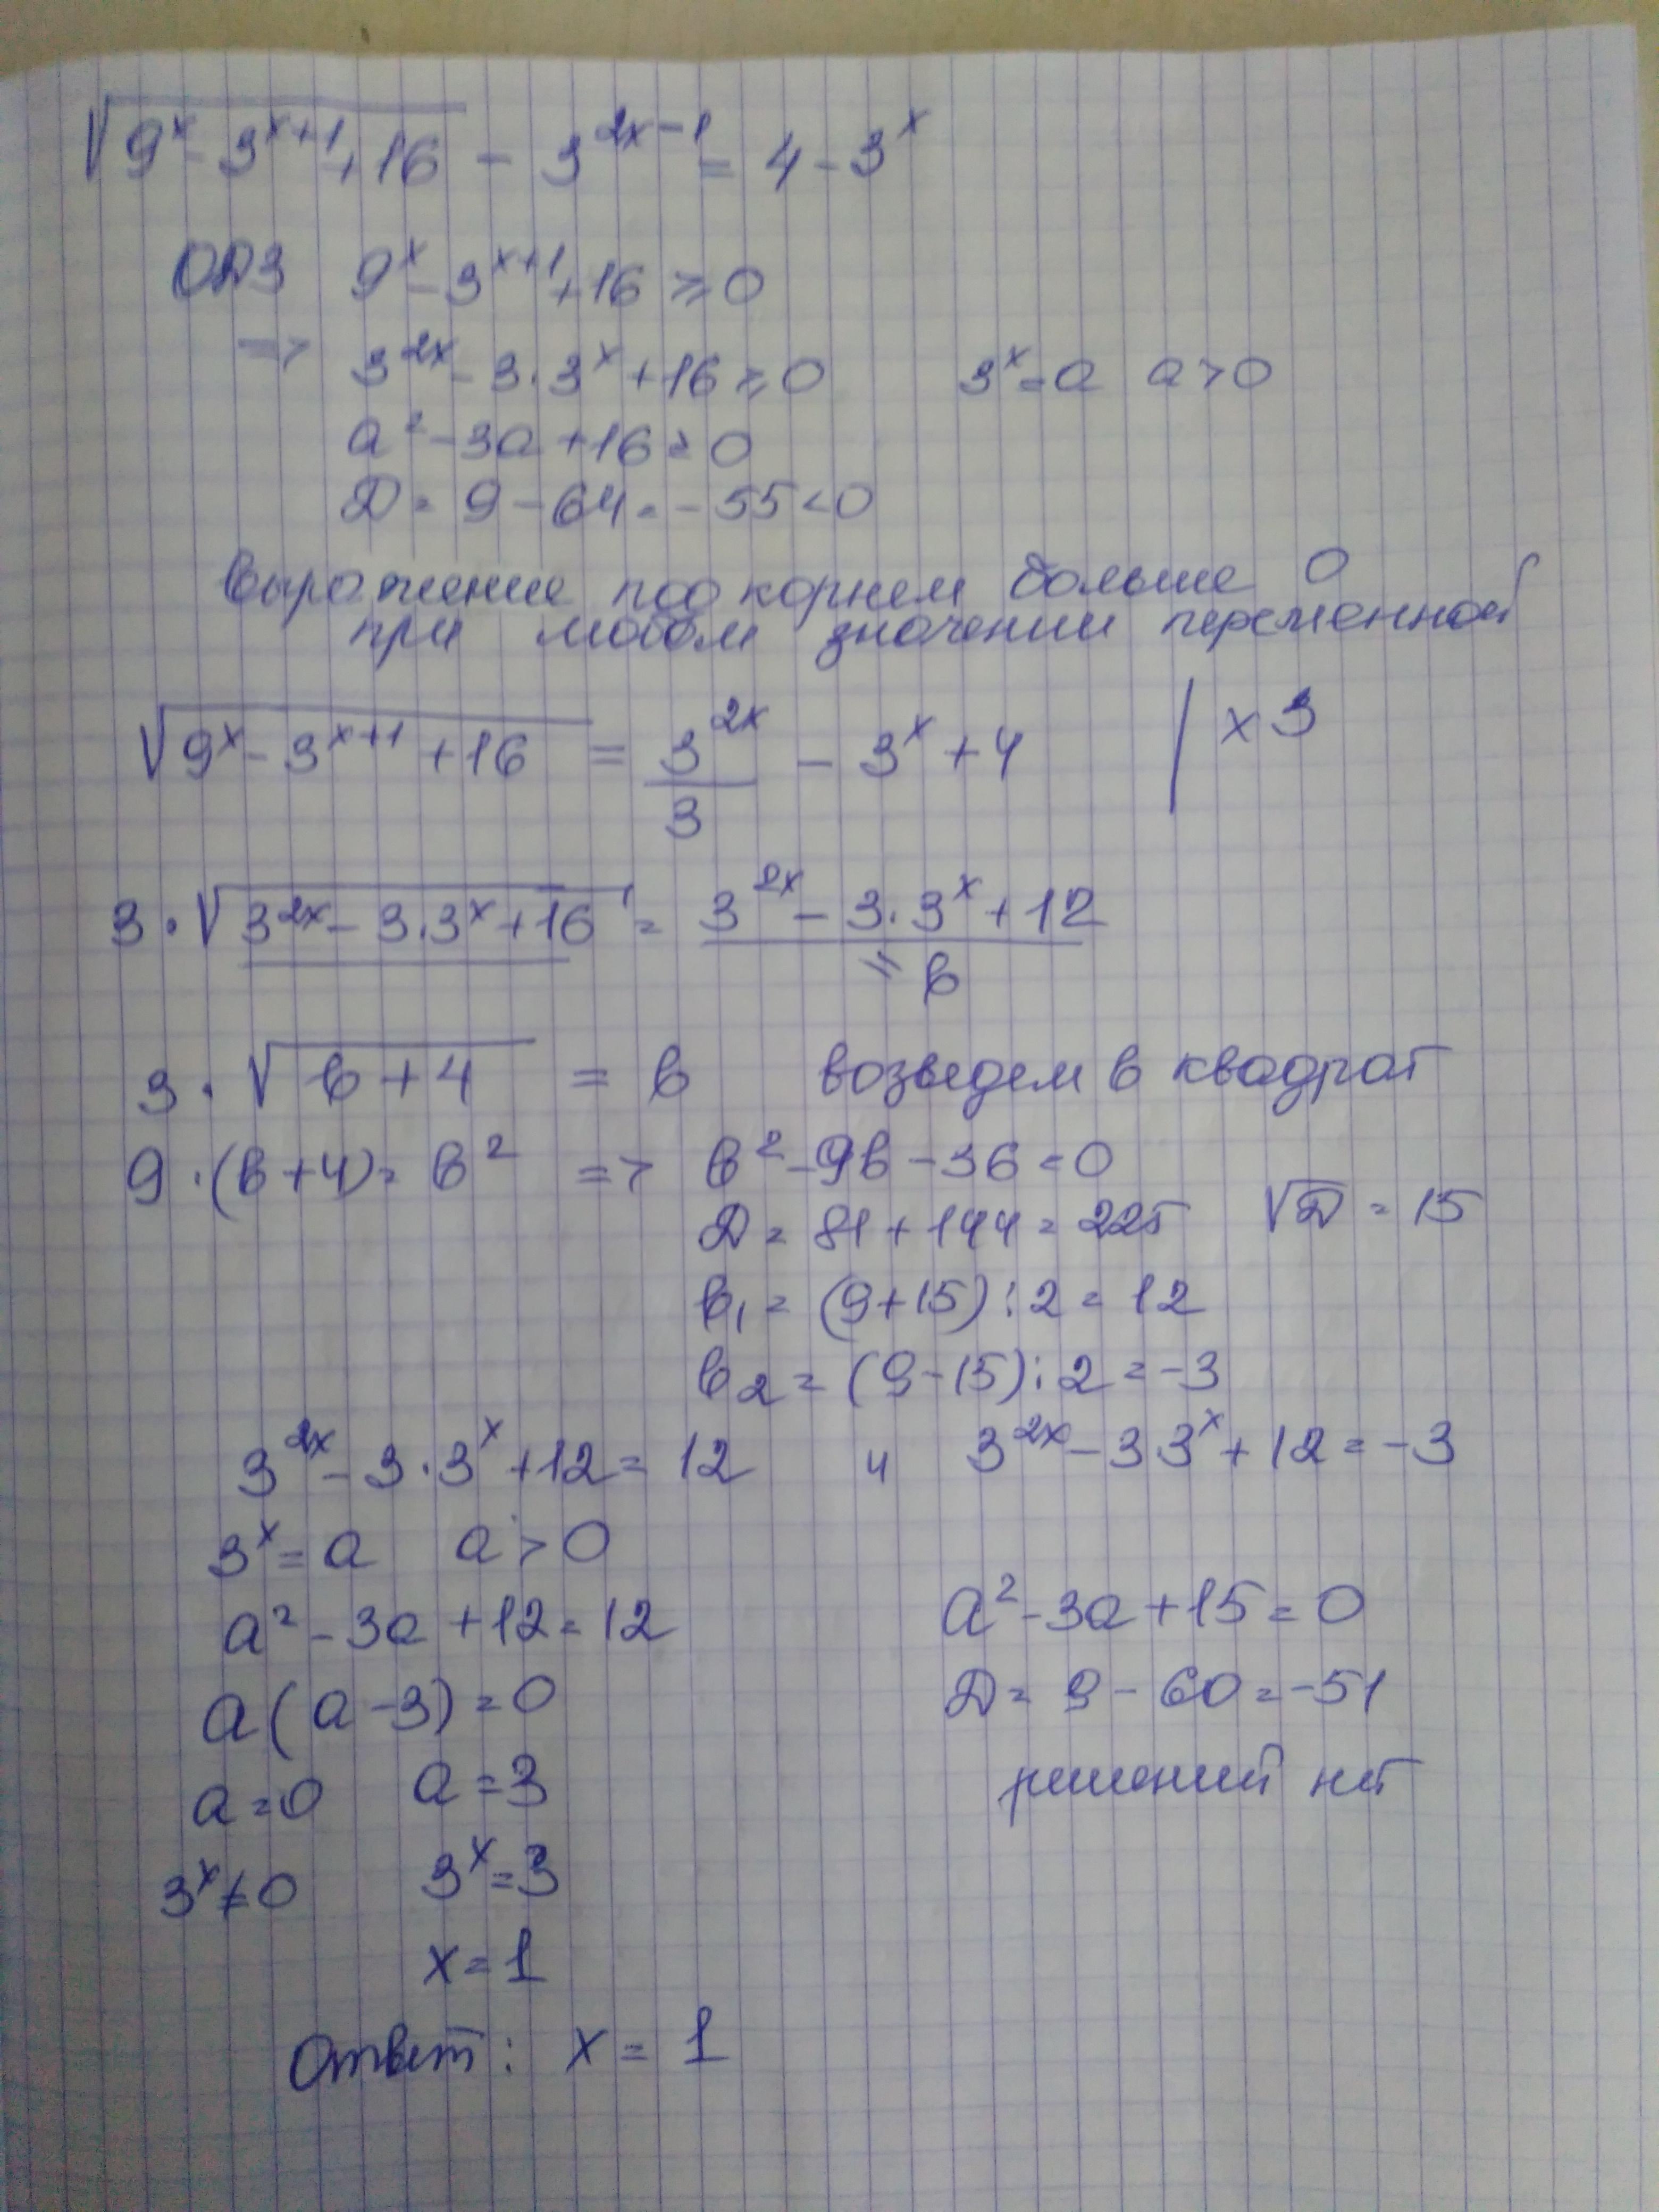 √(9^x - 3^(x+1) + 16) - 3^(2x-1) = 4 - 3^x
ОДЗ 9^x - 3^(x+1) + 16 ≥ 0
=> 3^(2x) - 3·3^x + 16 ≥ 0 3^x = a a > 0
a² - 3a + 16 ≥ 0
D = 9 - 64 = -55 < 0
Выражение под корнем больше 0
при любом значении переменной
√(9^x - 3^(x+1) + 16) = 3^(2x)/3 - 3^x + 4 | x 3
3·√(3^(2x) - 3·3^x + 16) = 3^(2x) - 3·3^x + 12
= в
3·√(в + 4) = в возведем в квадрат
9·(в+4) = в² => в² - 9в - 36 = 0
D = 81 + 144 = 225 √D = 15
в₁ = (9+15):2 = 12
в₂ = (9-15):2 = -3
3^(2x) - 3·3^x + 12 = 12 и 3^(2x) - 3·3^x + 12 = -3
3^x = a a > 0
a² - 3a + 12 = 12 a² - 3a + 15 = 0
a(a - 3) = 0 D = 9 - 60 = -51
a = 0 a = 3 решений нет
3^x ≠ 0 3^x = 3
x = 1
Ответ: x = 1